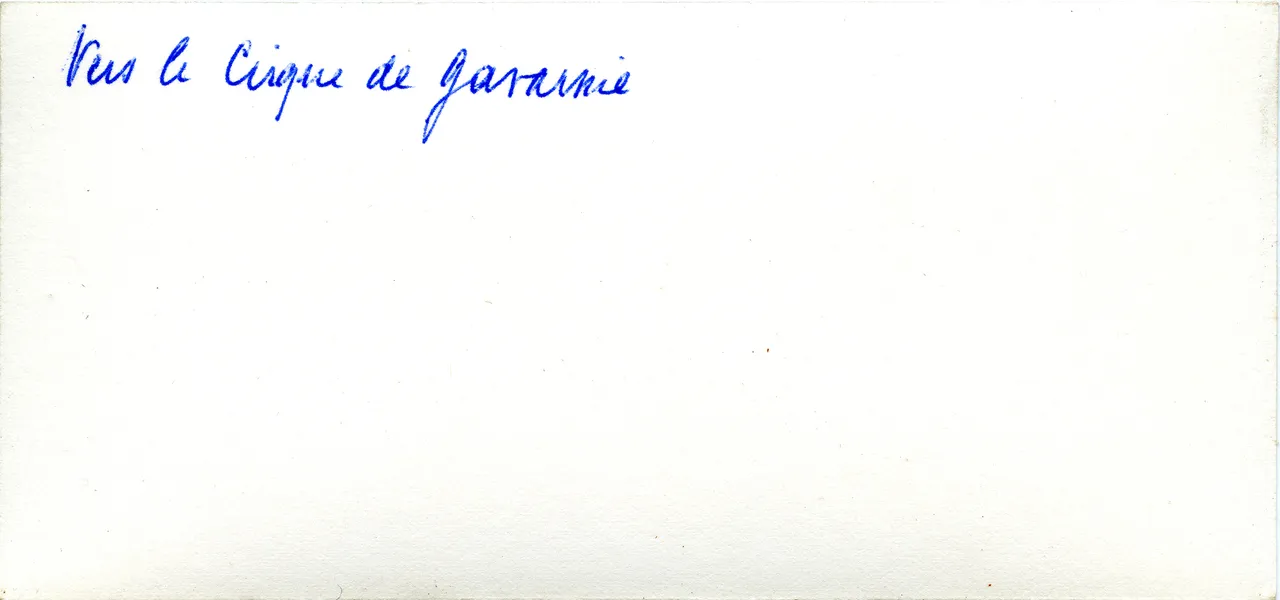 Vers le Cirque de Gavarnie